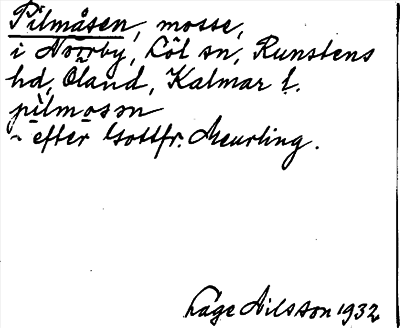 Pilmåsen, mosse,
i Norrby, Löt sn, Runstens
hd, Öland, Kalmar l.
pilmosən
~ efter Gottfr. Meurling.
Låge Nilsson 1932